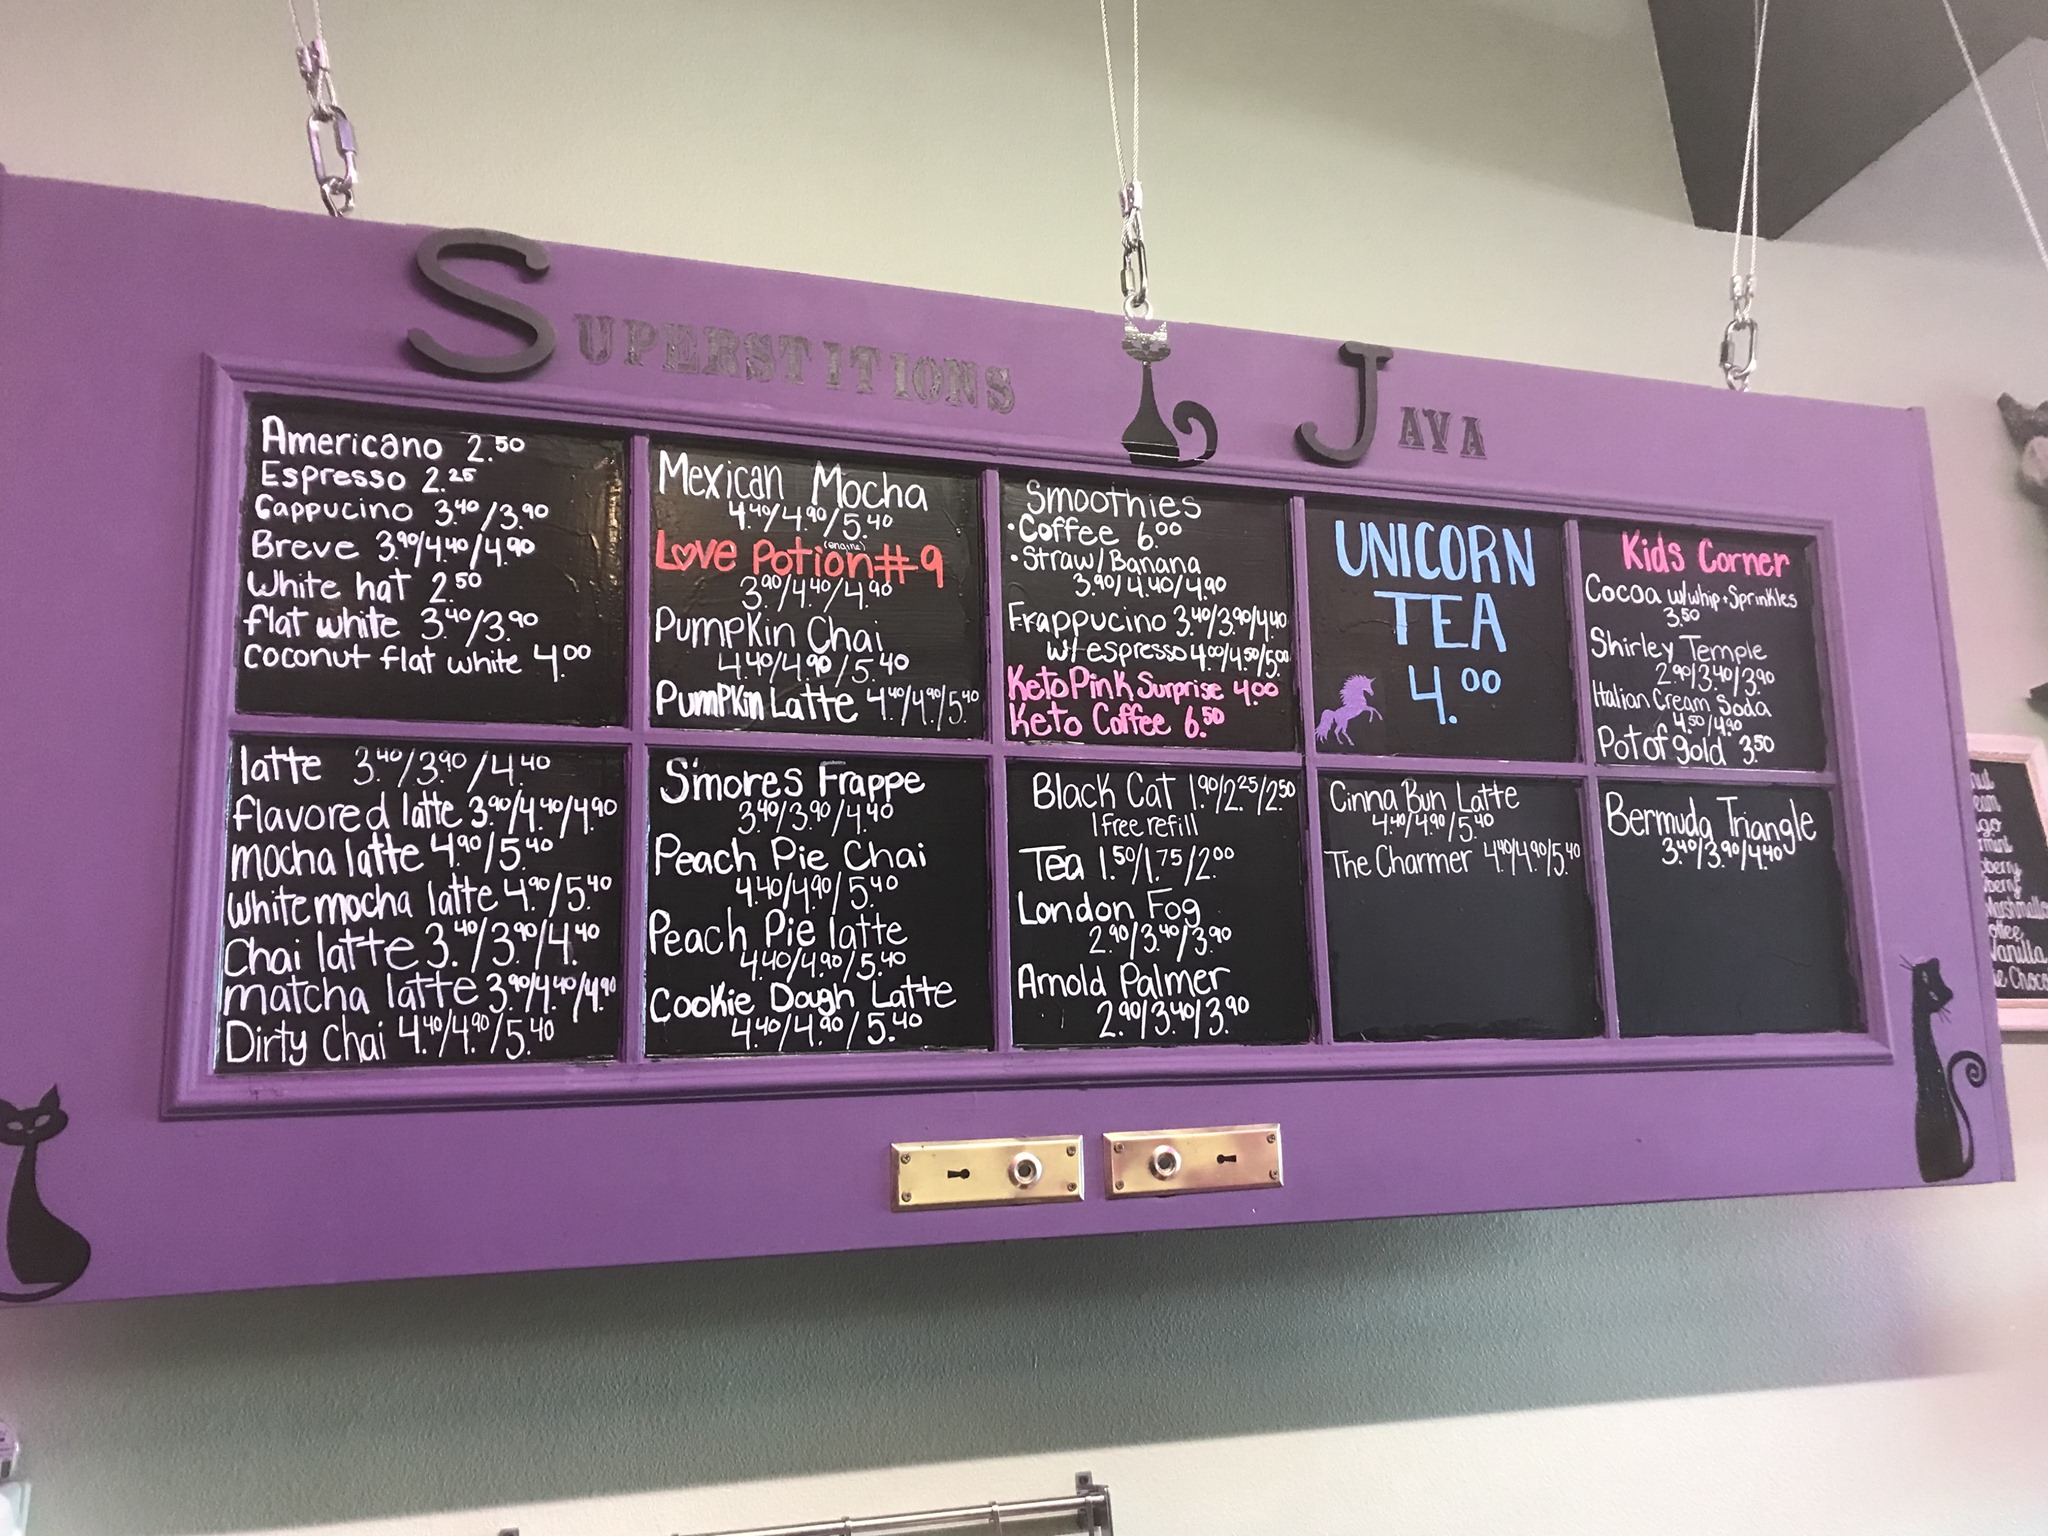 SUPERSTITIONS JAVA
Americano 2.50
Espresso 2.25
Cappucino 3.40/3.90
Breve 3.90/4.40/4.90
White hat 2.50
flat white 3.40/3.90
coconut flat white 4.00
Mexican Mocha
4.40/4.90/5.40
Love Potion #9
3.90/4.40/4.90
Pumpkin Chai
4.40/4.90/5.40
Pumpkin Latte 4.40/4.90/5.40
Smoothies
• Coffee 6.00
• Straw/Banana
3.90/4.40/4.90
Frappucino 3.40/3.90/4.40
w/ espresso 4.00/4.50/5.00
Keto Pink Surprise 4.00
Keto Coffee 6.50
UNICORN
TEA
4.00
Kids Corner
Cocoa w/whip+Sprinkles
3.50
Shirley Temple
2.90/3.40/3.90
Italian Cream Soda
4.50/4.90
Pot of gold 3.50
latte 3.40/3.90/4.40
flavored latte 3.90/4.40/4.90
mocha latte 4.90/5.40
White mocha latte 4.90/5.40
Chai latte 3.40/3.90/4.40
matcha latte 3.90/4.40/4.90
Dirty Chai 4.40/4.90/5.40
S'mores Frappe
3.40/3.90/4.40
Peach Pie Chai
4.40/4.90/5.40
Peach Pie latte
4.40/4.90/5.40
Cookie Dough Latte
4.40/4.90/5.40
Black Cat 1.90/2.25/2.50
1 free refill
Tea 1.50/1.75/2.00
London Fog
2.90/3.40/3.90
Arnold Palmer
2.90/3.40/3.90
Cinna Bun Latte
4.40/4.90/5.40
The Charmer 4.40/4.90/5.40
Bermuda Triangle
3.40/3.90/4.40
Vanilla